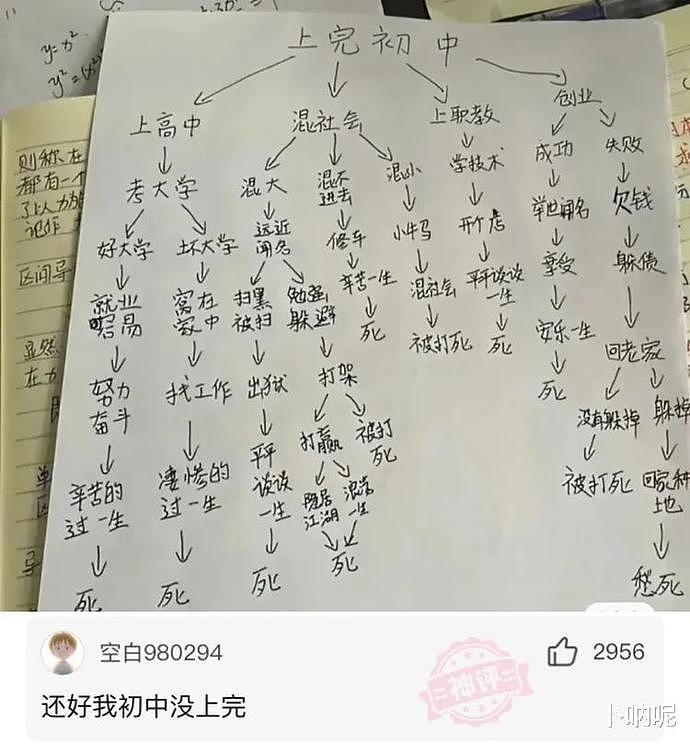 y=x²
上完初中
上高中
混社会
上职教
创业
考大学
混大
混不
进去
混小
学技术
成功
失败
好大学
坏大学
远近
闻名
修车
小牛马
举世闻名
欠钱
就业
容易
窝在
家中
扫黑
被扫
勉强
躲避
辛苦一生
混社会
平平谈谈
一生
享受
躲债
努力
奋斗
找工作
出狱
打架
死
被打死
死
安乐一生
回老家
辛苦的
过一生
凄惨的
过一生
平平
谈谈
一生
打赢
被打
死
死
没有躲掉
躲掉
隐居
江湖
浪荡
一生
被打死
回家种
地
死
死
死
死
愁死
则称在
都有一个
区间导
显然
在力
空白980294
2956
神评
还好我初中没上完
卜呐呢